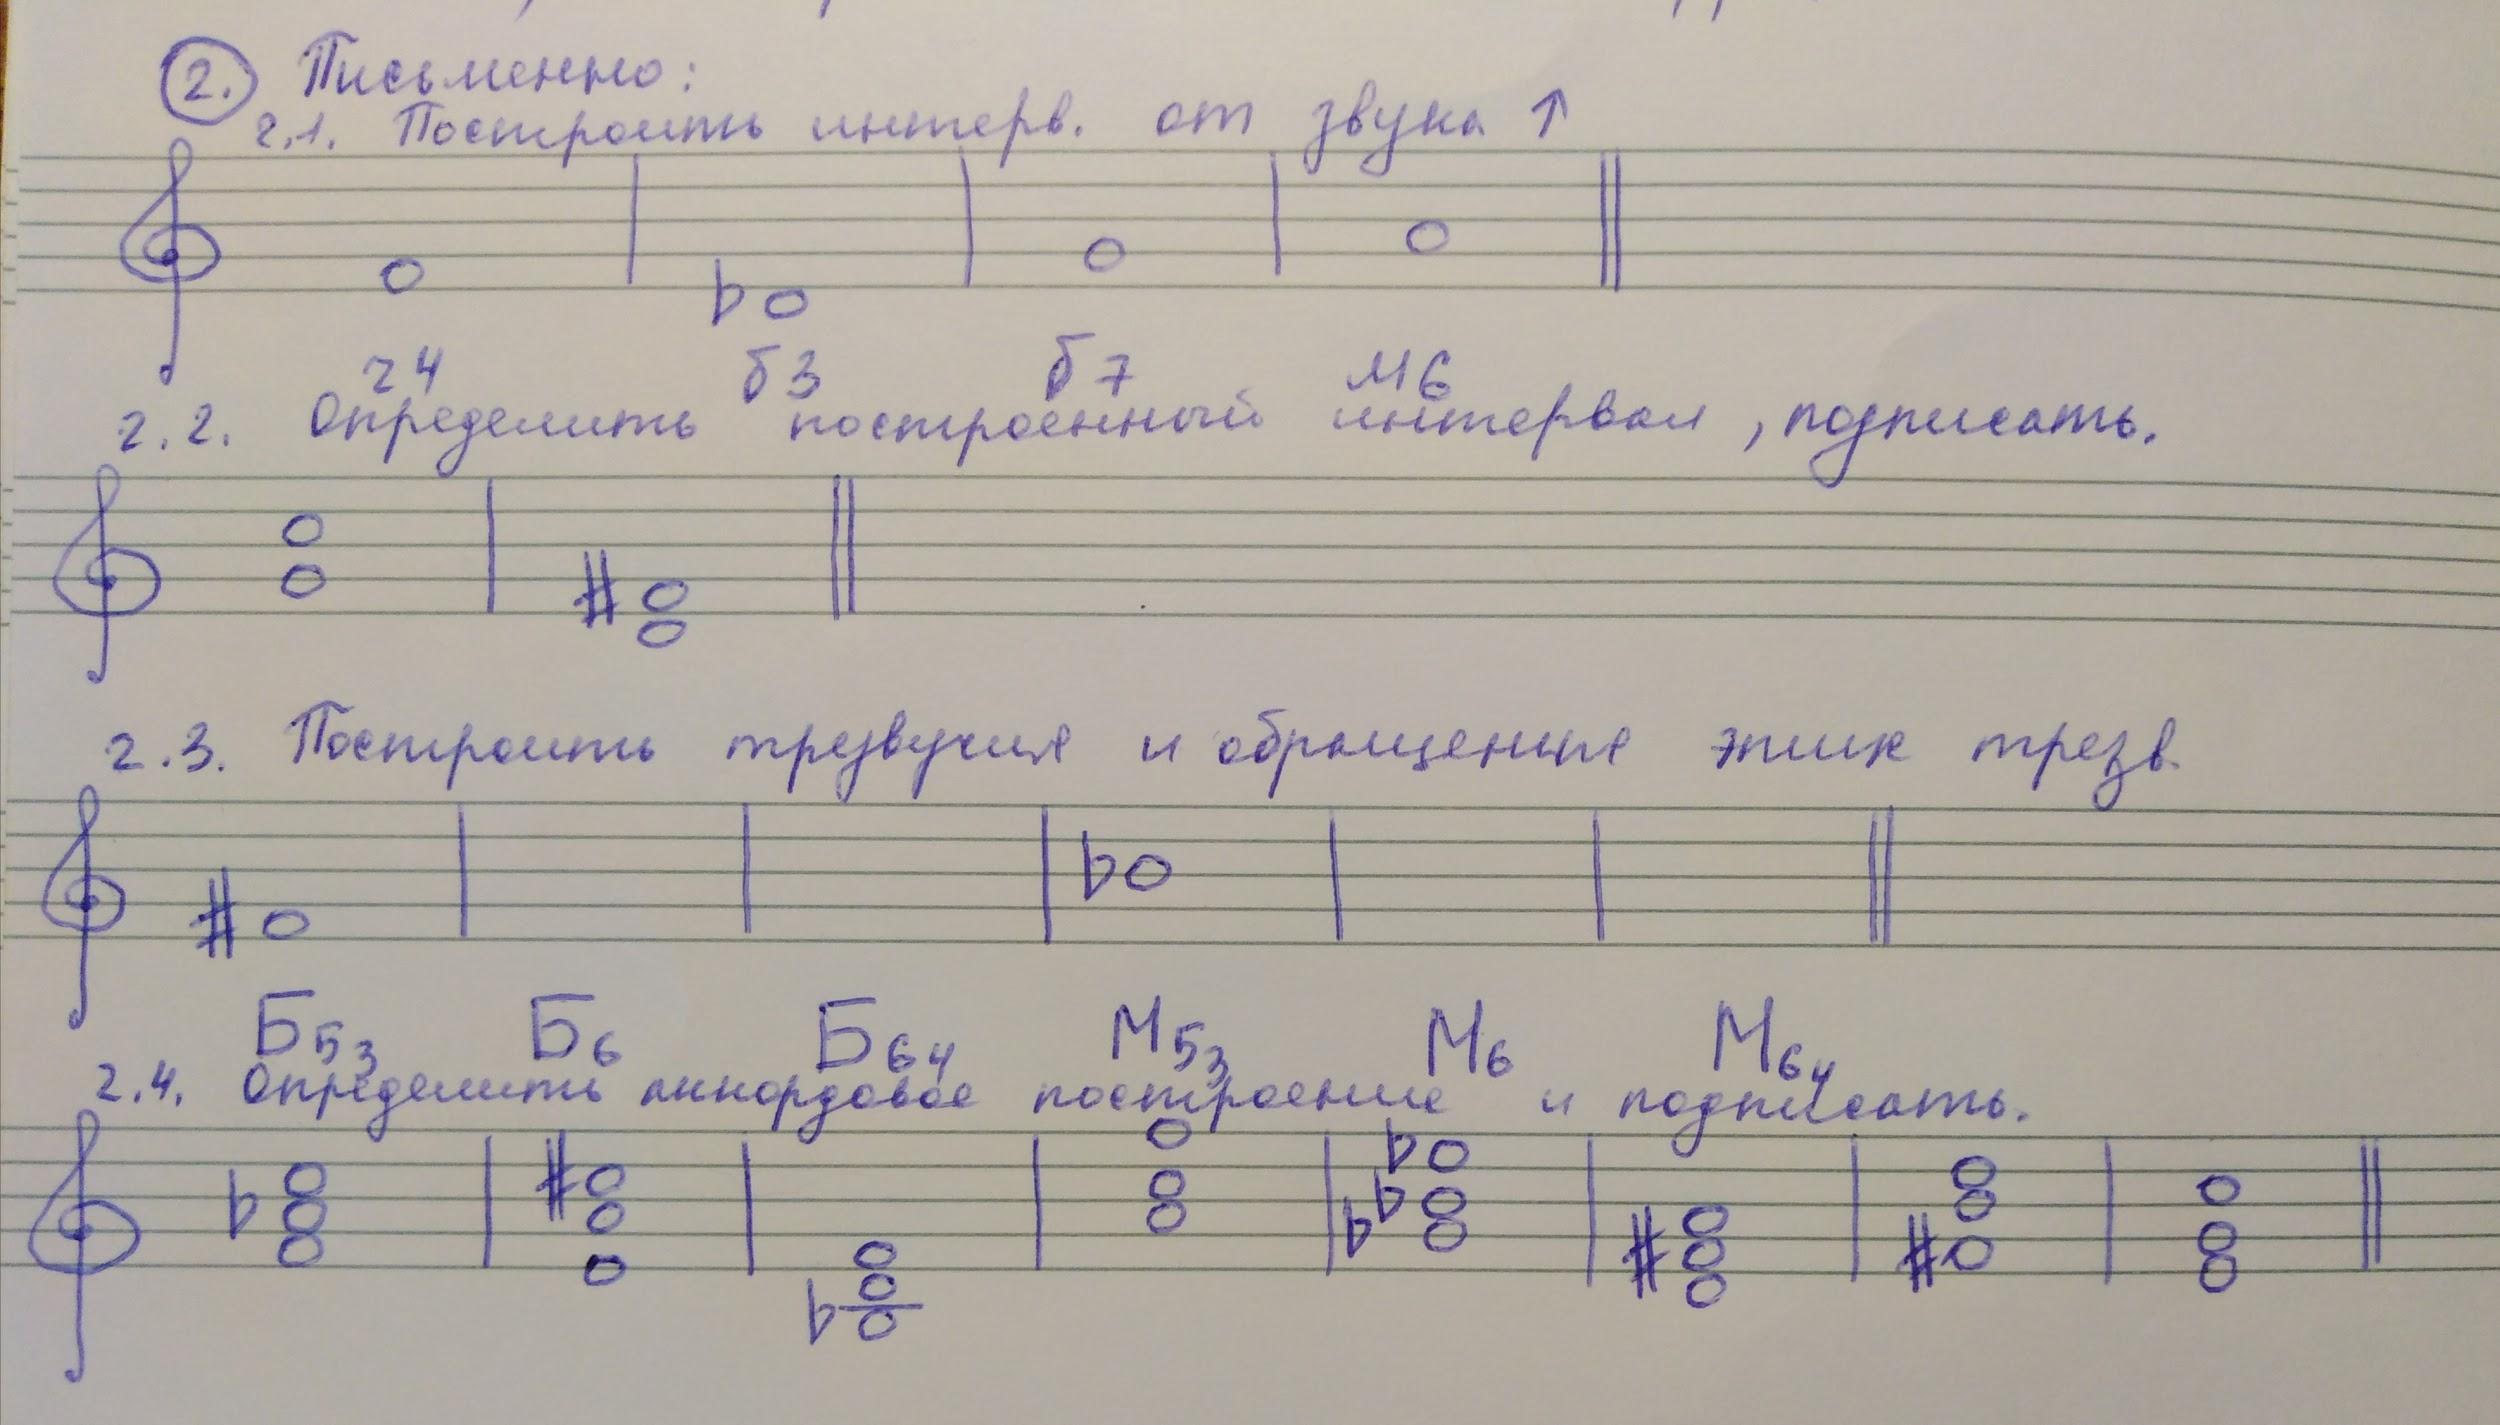 2. Письменно:
2.1. Построить интерв. от звука ↑
ч4 б3 б7 м6
2.2. Определить построенный интервал, подписать.
2.3. Построить трезвучия и обращения этих трезв.
Б53 Б6 Б64 М53 М6 М64
2.4. Определить аккордовое построение и подписать.